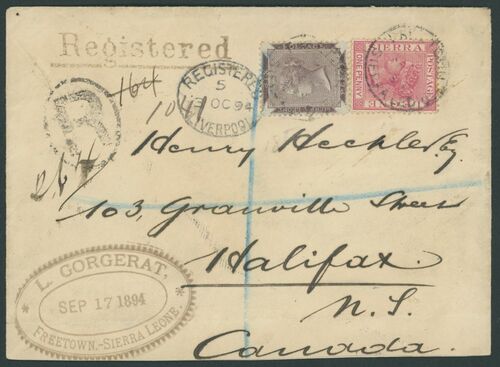 Registered
REGISTERED
5
OC 94
LIVERPOOL
SIERRA
POSTAGE
ONE PENNY
R
164
1041
Henry Hechler Esq.
103, Granville Street
Halifax
N.S.
Canada.
L. GORGERAT,
SEP 17 1894
FREETOWN.-SIERRA LEONE.